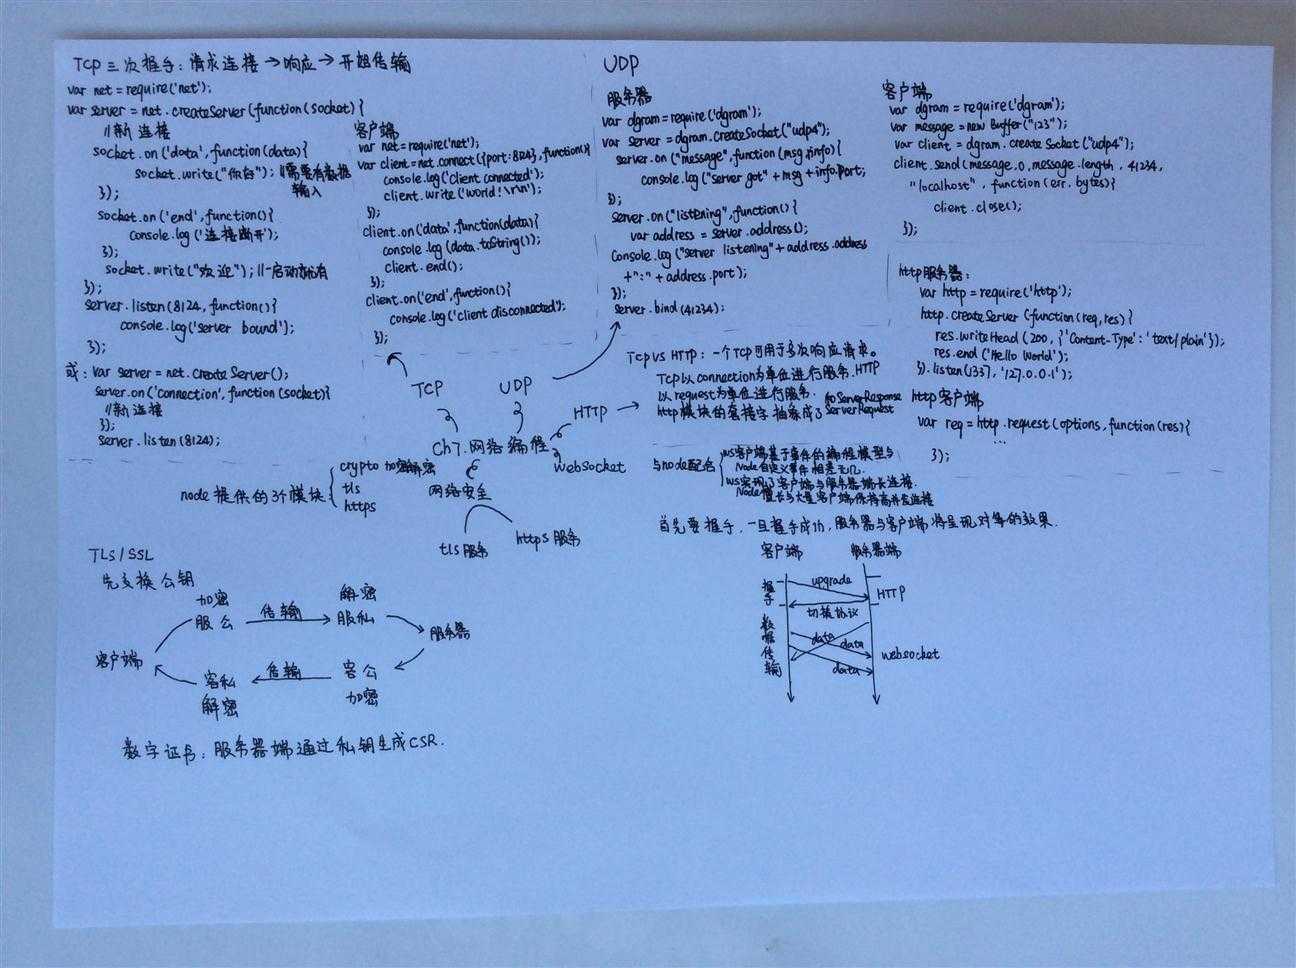 TCP 三次握手：请求连接→响应→开始传输
var net = require('net');
var server = net.createServer(function(socket){
//新连接
socket.on('data',function(data){
socket.write("你好"); //需要有数据
输入
});
socket.on('end',function(){
console.log('连接断开');
});
socket.write("欢迎"); //一启动就有
});
server.listen(8124,function(){
console.log('server bound');
});
或：var server = net.createServer();
server.on('connection',function(socket){
//新连接
});
server.listen(8124);
客户端
var net=require('net');
var client=net.connect({port:8124},function(){
console.log('client connected');
client.write('world!\r\n');
});
client.on('data',function(data){
console.log(data.toString());
client.end();
});
client.on('end',function(){
console.log('client disconnected');
});
UDP
服务器
var dgram=require('dgram');
var server = dgram.createSocket("udp4");
server.on("message",function(msg,info){
console.log("server got"+msg+info.port;
});
server.on("listening",function(){
var address = server.address();
console.log("server listening"+address.address
+":"+address.port);
});
server.bind(41234);
客户端
var dgram=require('dgram');
var message=new Buffer("123");
var client = dgram.createSocket("udp4");
client.send(message,0,message.length,41234,
"localhost",function(err,bytes){
client.close();
});
http服务器：
var http=require('http');
http.createServer(function(req,res){
res.writeHead(200,{'Content-Type':'text/plain'});
res.end('Hello World');
}).listen(1337,'127.0.0.1');
http客户端
var req=http.request(options,function(res){
...
});
TCP VS HTTP：一个TCP可用于多次响应请求。
TCP以connection为单位进行服务.HTTP
以request为单位进行服务.
http模块的套接字抽象成了
和ServerResponse
ServerRequest
TCP
UDP
HTTP
Ch7.网络编程
WebSocket
网络安全
tls服务
https服务
node提供的3个模块
crypto 加密解密
tls
https
与node配合
ws客户端基于事件的编程模型与
Node自定义事件相差无几.
ws实现了客户端与服务器端长连接.
Node擅长与大量客户端保持高并发连接
首先要握手，一旦握手成功，服务器与客户端将呈现对等的效果.
客户端
服务器端
握手
upgrade
HTTP
切换协议
数据传输
data
data
websocket
data
TLS/SSL
先交换公钥
加密
服公
传输
解密
服私
服务器
客户端
客私
解密
传输
客公
加密
数字证书：服务器端通过私钥生成CSR.